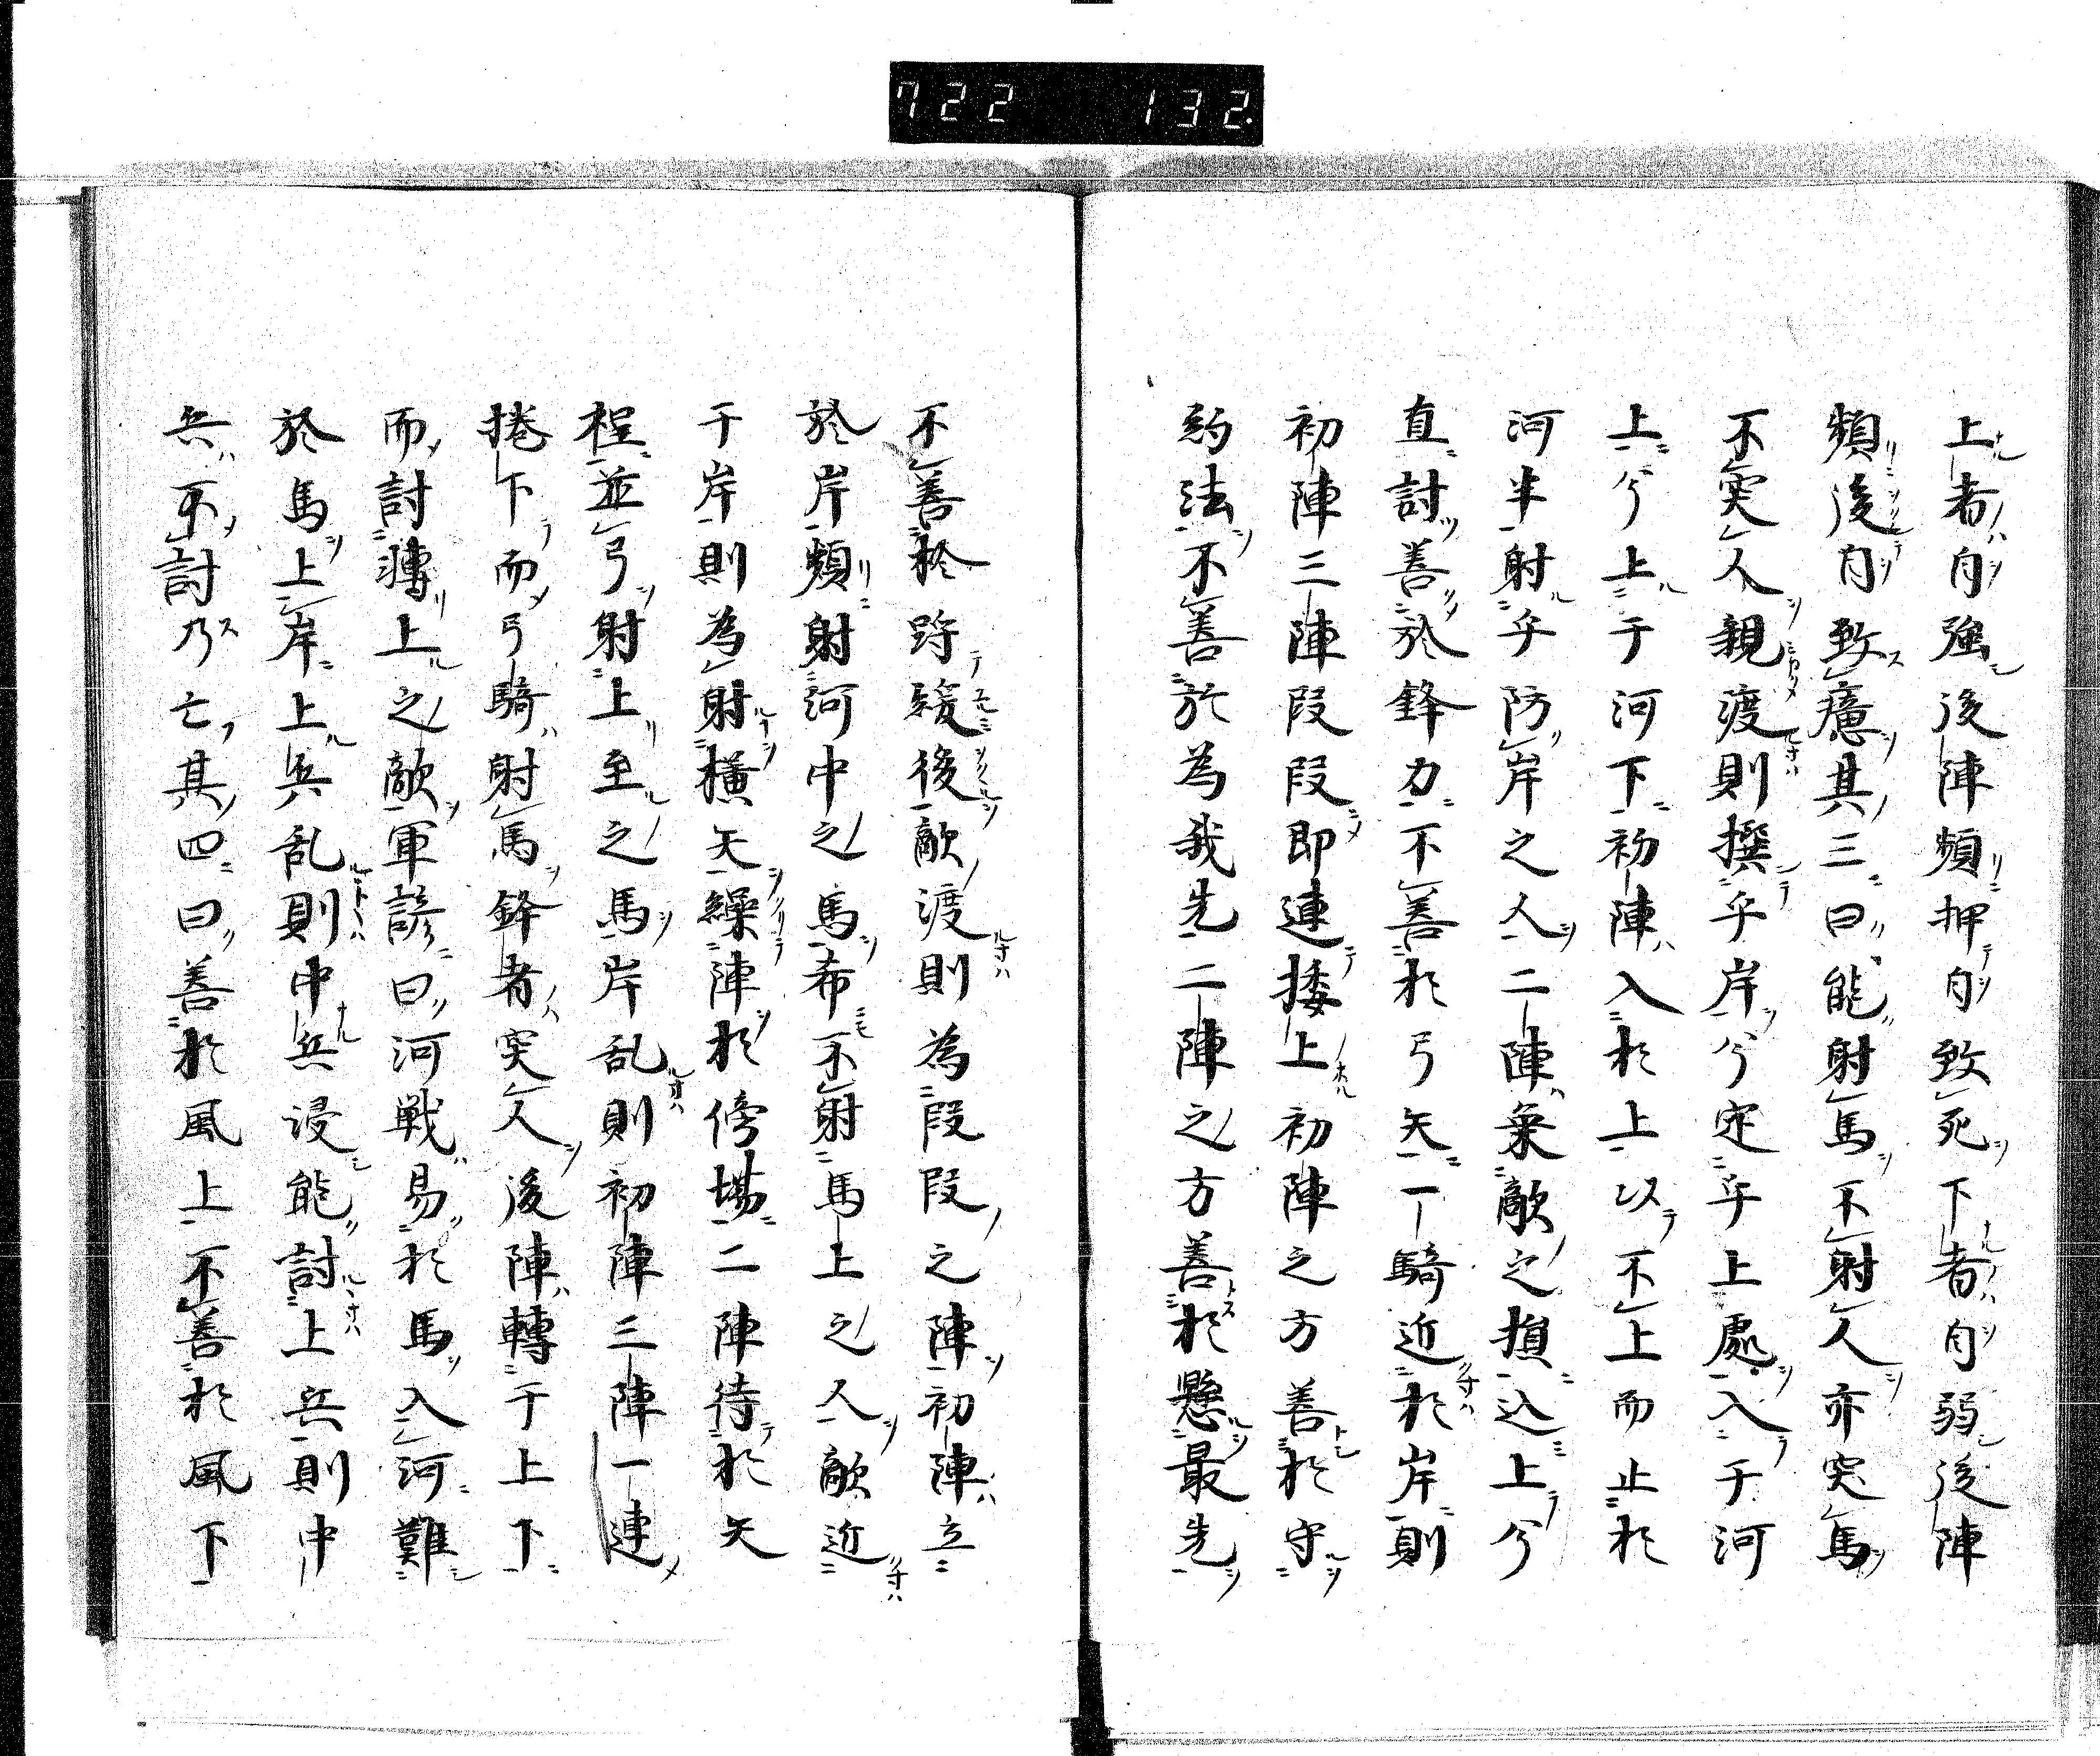 722 132.
上者自強後陣頻押自致死下者自弱後陣
頻後自致癔其三曰能射馬不射人亦突馬
不突人親渡則撰乎岸兮定乎上處入于河
上兮上于河下初陣入於上以不上而止於
河半射乎防岸之人二陣棄敵之損込上兮
直討善於鋒力不善於弓矢一騎近於岸則
初陣三陣段段即連捼上初陣之方善於守
約法不善於為我先二陣之方善於懸最先
不善於跨緩後敵渡則為段段之陣初陣立
於岸頻射河中之馬希不射馬上之人敵近
于岸則為射横矢繰陣於傍場二陣待於矢
程並弓射上至之馬岸乱則初陣三陣一連
捲下而弓騎射馬鋒者突人後陣轉于上下
而討轉上之敵軍諺曰河戦易於馬入河難
於馬上岸上兵乱則中兵浸能討上兵則中
兵不討乃亡其四曰善於風上不善於風下